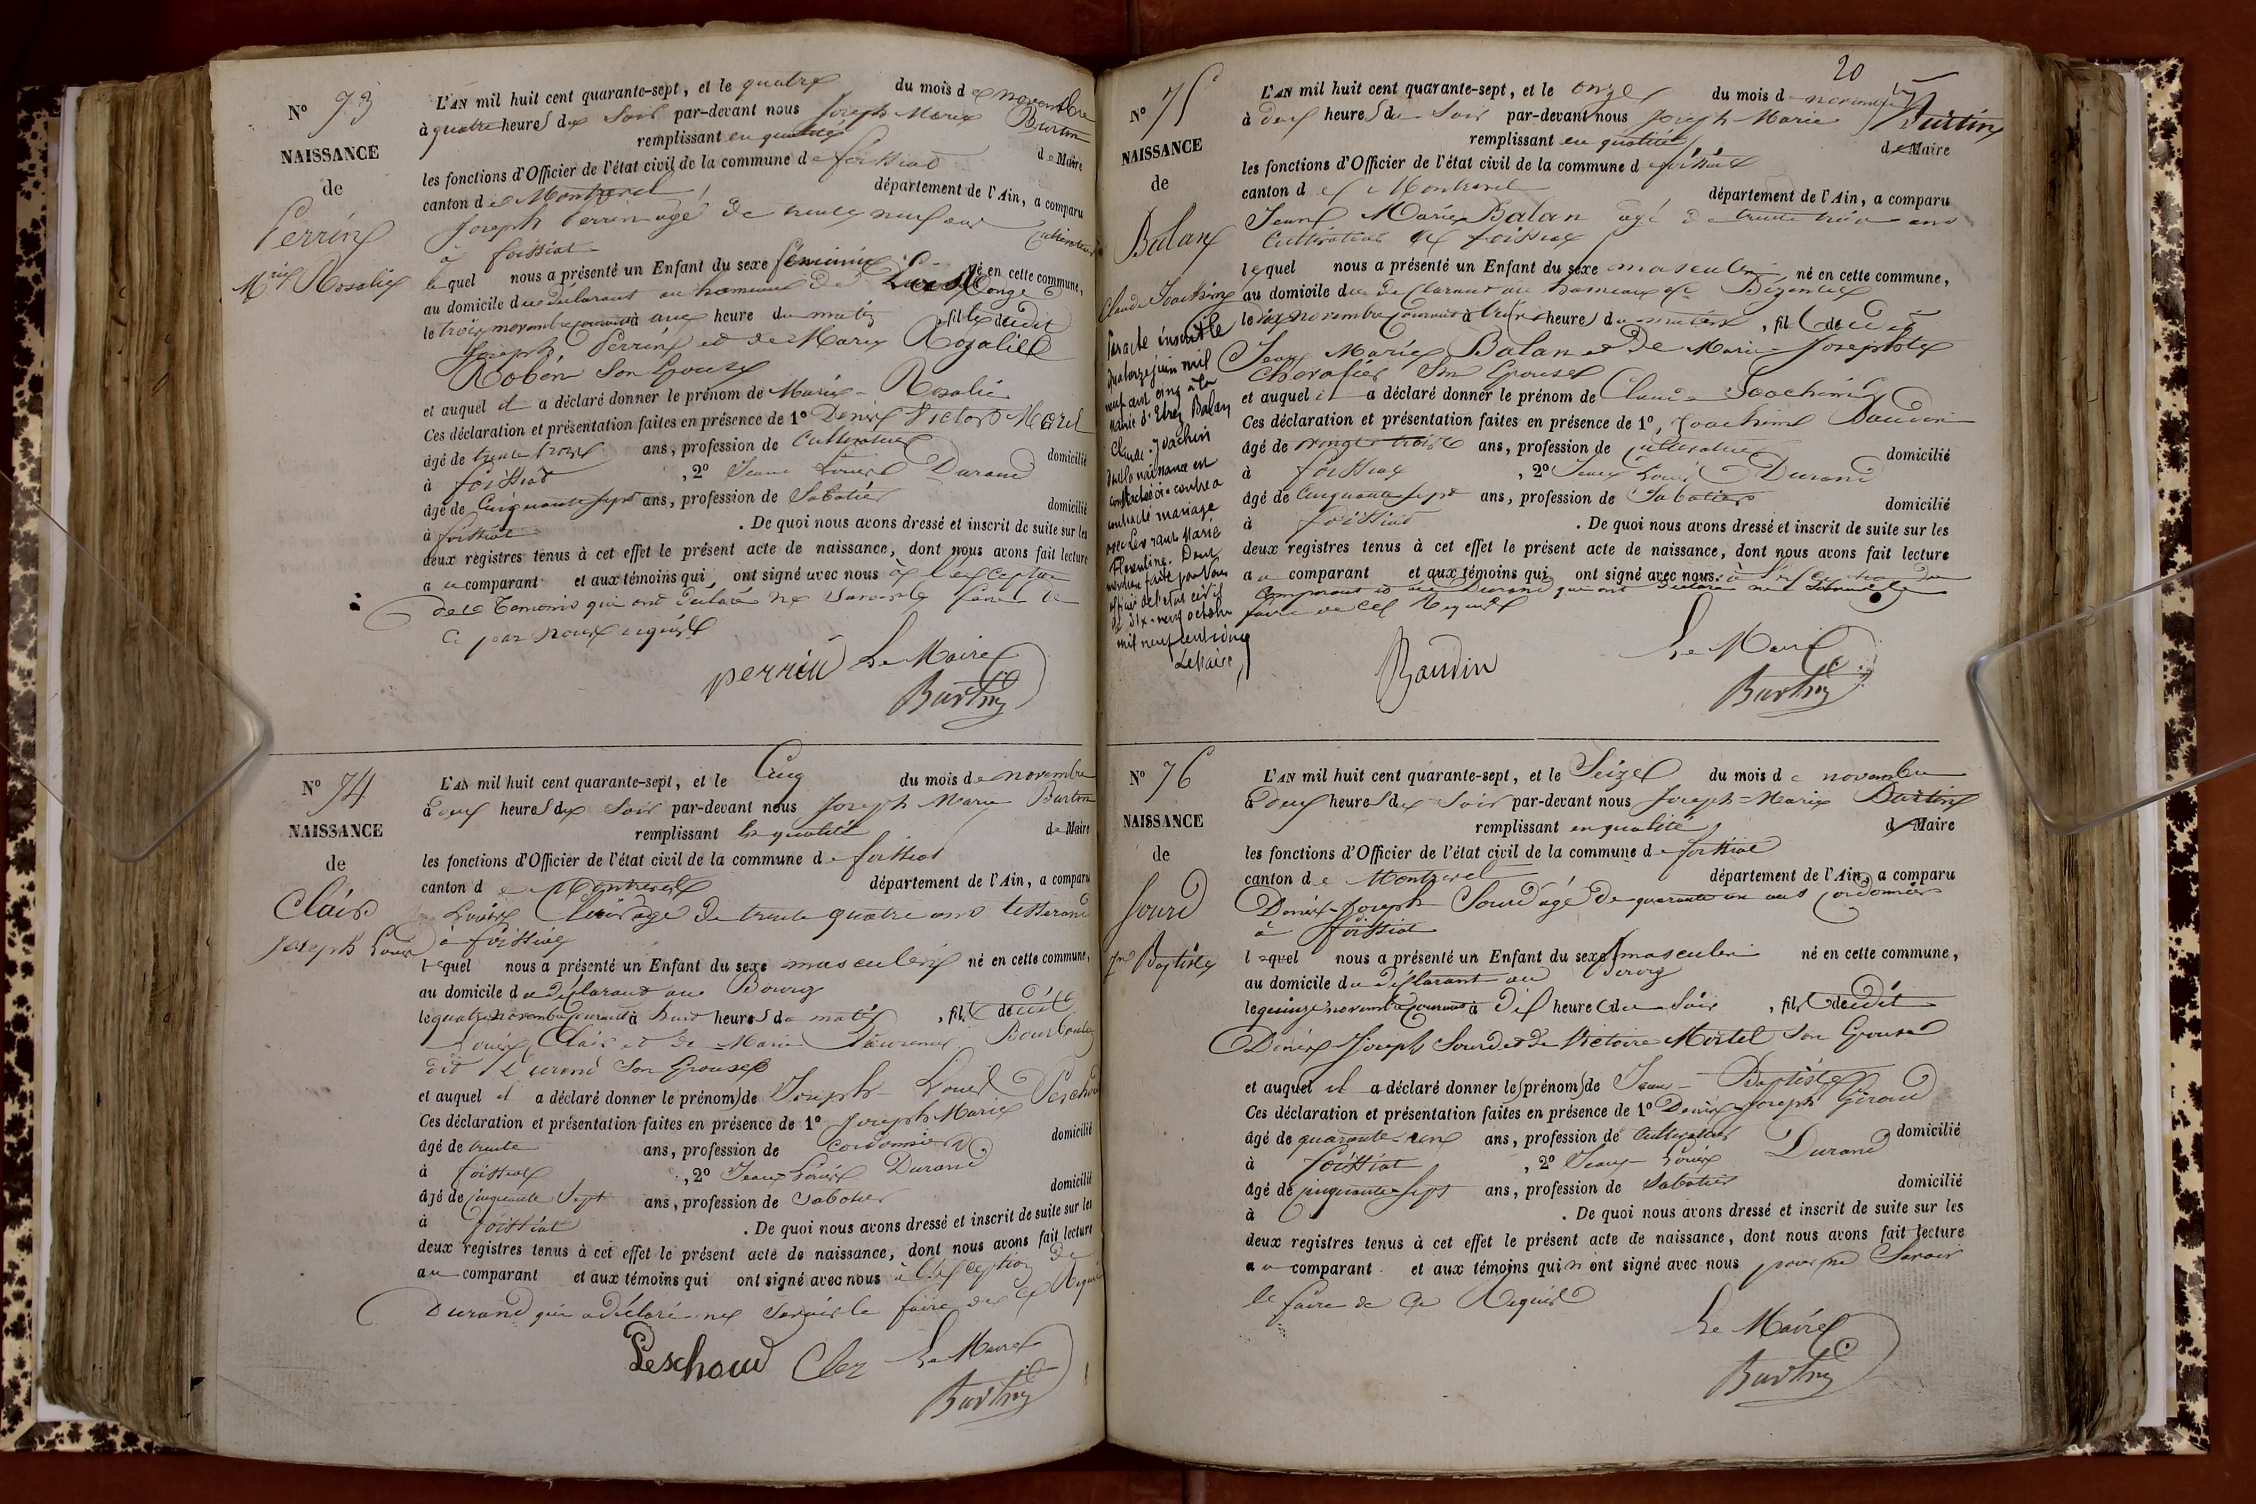 N° 73
NAISSANCE
de
Perrin
Mrie Rosalie
L'AN mil huit cent quarante-sept, et le quatre du mois de novembre
à quatre heures du soir par-devant nous Joseph Marie Burtin
remplissant en qualité de Maire
les fonctions d'Officier de l'état civil de la commune de foissiat
canton de Montrevel département de l'Ain, a comparu
Joseph Perrin agé de trente neuf ans Cultivateur
à foissiat
lequel nous a présenté un Enfant du sexe féminin né en cette commune,
au domicile du déclarant au hameau de
le trois novembre courant à une heure du matin, fille dudit
Joseph Perrin et de Marie Rozalie
Robin Son Epouse
et auquel il a déclaré donner le prénom de Marie-Rosalie
Ces déclaration et présentation faites en présence de 1° Denis Victor Morel
âgé de trente ans, profession de Cultivateur domicilié
à foissiat , 2° Jean Louis Durand
âgé de Cinquante sept ans, profession de Sabotier domicilié
à foissiat . De quoi nous avons dressé et inscrit de suite sur les
deux registres tenus à cet effet le présent acte de naissance, dont nous avons fait lecture
au comparant et aux témoins qui ont signé avec nous à l'exception
des témoins qui ont déclaré ne savoir le faire de
ce par nous requis
perrin Le Maire
Burtin
N° 74
NAISSANCE
de
Clair
Joseph Louis
L'AN mil huit cent quarante-sept, et le Cinq du mois de novembre
à deux heures du soir par-devant nous Joseph Marie Burtin
remplissant en qualité de Maire
les fonctions d'Officier de l'état civil de la commune de foissiat
canton de Montrevel département de l'Ain, a comparu
Louis Clair âgé de trente quatre ans tisserand
à foissiat
lequel nous a présenté un Enfant du sexe masculin né en cette commune,
au domicile du déclarant au Bourg
le quatre novembre courant à huit heures du matin, fils dudit
Louis Clair et de Marie
dit Durand Son Epouse
et auquel il a déclaré donner le prénom de Joseph Louis
Ces déclaration et présentation faites en présence de 1° Joseph Marie Peschoud
âgé de trente ans, profession de cordonnier domicilié
à foissiat , 2° Jean Louis Durand
âgé de Cinquante Sept ans, profession de Sabotier domicilié
à foissiat . De quoi nous avons dressé et inscrit de suite sur les
deux registres tenus à cet effet le présent acte de naissance, dont nous avons fait lecture
au comparant et aux témoins qui ont signé avec nous à l'exception de
Durand qui a déclaré ne savoir le faire de ce Requis
Peschoud Cler Le Maire
Burtin
20
N° 75
NAISSANCE
de
Balan
Claude Joachim
Par acte inscrit le
quatorze juin mil
neuf cent cinq à la
mairie d'Etrez Balan
Claude-Joachim
dont la naissance est
constatée ci-contre a
contracté mariage
avec Marie
Florentine.
mention faite par nous
officier de l'état civil
le dix-neuf octobre
mil neuf cent cinq
Le Maire
L'AN mil huit cent quarante-sept, et le onze du mois de novembre
à deux heures du soir par-devant nous Joseph Marie Burtin
remplissant en qualité de Maire
les fonctions d'Officier de l'état civil de la commune de foissiat
canton de Montrevel département de l'Ain, a comparu
Jean Marie Balan agé de trente trois ans
Cultivateur à foissiat
lequel nous a présenté un Enfant du sexe masculin, né en cette commune,
au domicile du déclarant au hameau de
le dix novembre courant à heures du matin, fils dudit
Jean Marie Balan et de Marie Josephte
Chevalier Son Epouse
et auquel il a déclaré donner le prénom de Claude Joachim
Ces déclaration et présentation faites en présence de 1°, Joachim Baudin
âgé de vingt trois ans, profession de cultivateur domicilié
à foissiat , 2° Jean Louis Durand
âgé de Cinquante sept ans, profession de Sabotier domicilié
à foissiat . De quoi nous avons dressé et inscrit de suite sur les
deux registres tenus à cet effet le présent acte de naissance, dont nous avons fait lecture
au comparant et aux témoins qui ont signé avec nous à l'exception du
comparant et de Durand qui ont déclaré ne savoir le
faire de ce Requis
Baudin
Le Maire
Burtin
N° 76
NAISSANCE
de
Sourd
Jn Baptiste
L'AN mil huit cent quarante-sept, et le Seize du mois de novembre
à deux heures du soir par-devant nous Joseph-Marie Burtin
remplissant en qualité de Maire
les fonctions d'Officier de l'état civil de la commune de foissiat
canton de Montrevel département de l'Ain, a comparu
Denis-Joseph Sourd âgé de quarante un ans cordonnier
à foissiat
lequel nous a présenté un Enfant du sexe masculin né en cette commune,
au domicile du déclarant au Bourg
le quinze novembre courant à dix heures du soir, fils dudit
Denis Joseph Sourd et de Victoire Morel Son Epouse
et auquel il a déclaré donner le prénom de Jean-Baptiste
Ces déclaration et présentation faites en présence de 1° Denis-Joseph Giroud
âgé de quarante cinq ans, profession de Cultivateur domicilié
à foissiat , 2° Jean-Louis Durand
âgé de cinquante sept ans, profession de Sabotier domicilié
à . De quoi nous avons dressé et inscrit de suite sur les
deux registres tenus à cet effet le présent acte de naissance, dont nous avons fait lecture
au comparant et aux témoins qui n'ont signé avec nous pour ne Savoir
le faire de ce Requis
Le Maire
Burtin